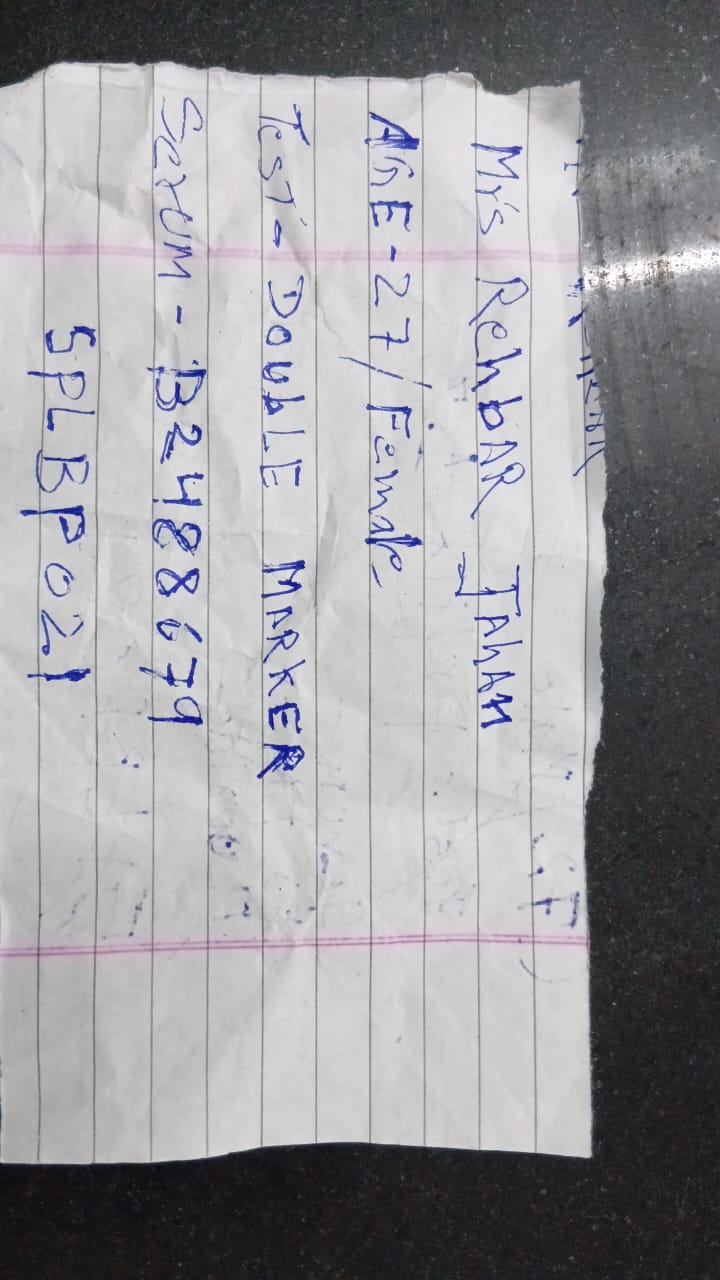 Mrs Rehbar Jahan
AGE-27/Female
Test- Double MARKER
Serum - B2488679
SPLBP021